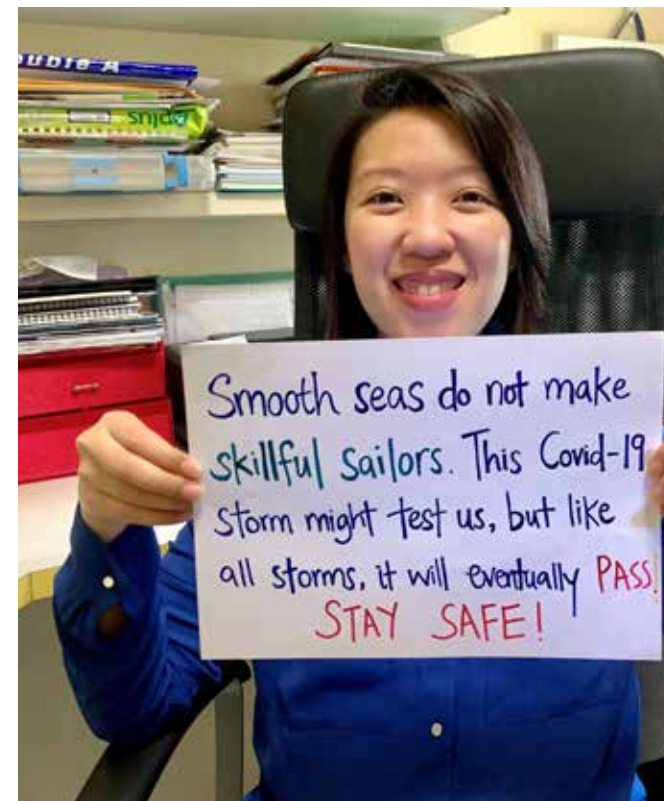 Double A
plus
Smooth seas do not make
skillful sailors. This Covid-19
storm might test us, but like
all storms, it will eventually PASS!
STAY SAFE!